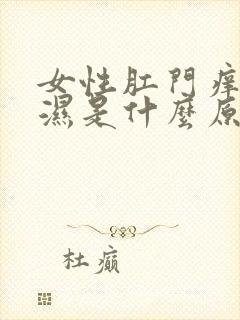 女性肛門痒
濕是什麼原
杜癲